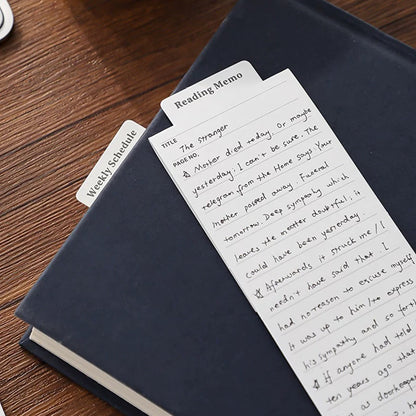 Weekly Schedule
Reading Memo
TITLE The Stranger
PAGE NO.
☆ Mother died today. Or maybe
yesterday. I can't be sure. The
telegram from the Home says. Your
mother passed away. Funeral
tomorrow. Deep sympathy which
leaves the matter doubtful; it
could have been yesterday.
☆ Afterwards it struck me / I
needn't have said that. I
had no reason to excuse myself
It was up to him/to express
his sympathy and so fort
☆ If anyone had told
ten years ago that
as doorkeep